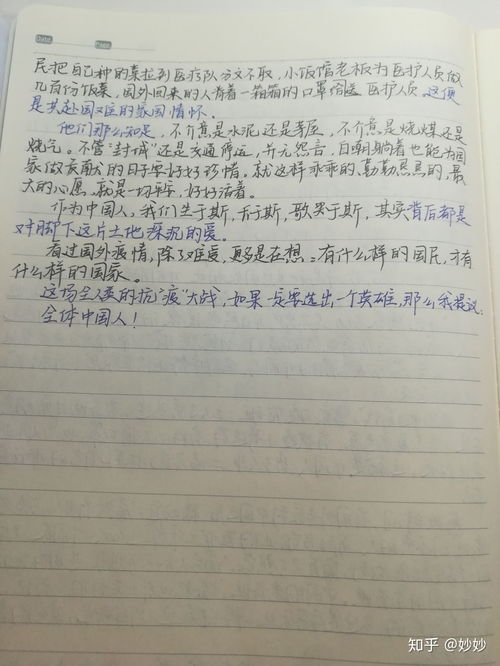 Date
Page
民把自己种的菜拉到医疗队分文不取,小饭馆老板为医护人员做
几百份饭菜,国外回来的人背着一箱箱的口罩送医护人员,这便
是共赴国难的家国情怀。
他们那么知足,不介意是水泥还是茅屋,不介意是烧煤还是
烧气。不管"封城"还是交通停运,并无怨言,自嘲躺着也能为国
家做贡献的日子要好好珍惜。就这样乖乖的、勤勤恳恳的,最
大的心愿就是一切平安,好好活着。
作为中国人,我们生于斯,长于斯,歌哭于斯,其实背后都是
对脚下这片土地深沉的爱。
看过国外疫情,除了难受,更多是在想:有什么样的国民,才有
什么样的国家。
这场全人类的抗"疫"大战,如果一定要选出一个英雄,那么我提议:
全体中国人!
知乎 @妙妙